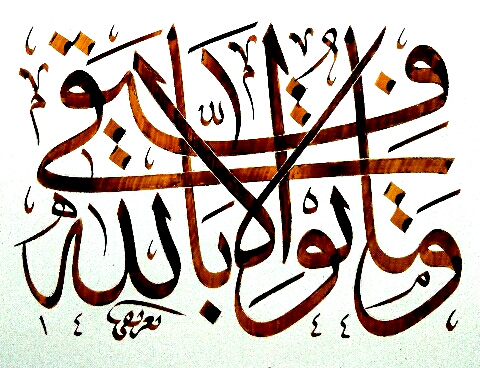 وما توفيقي إلا بالله
١٤٤٤